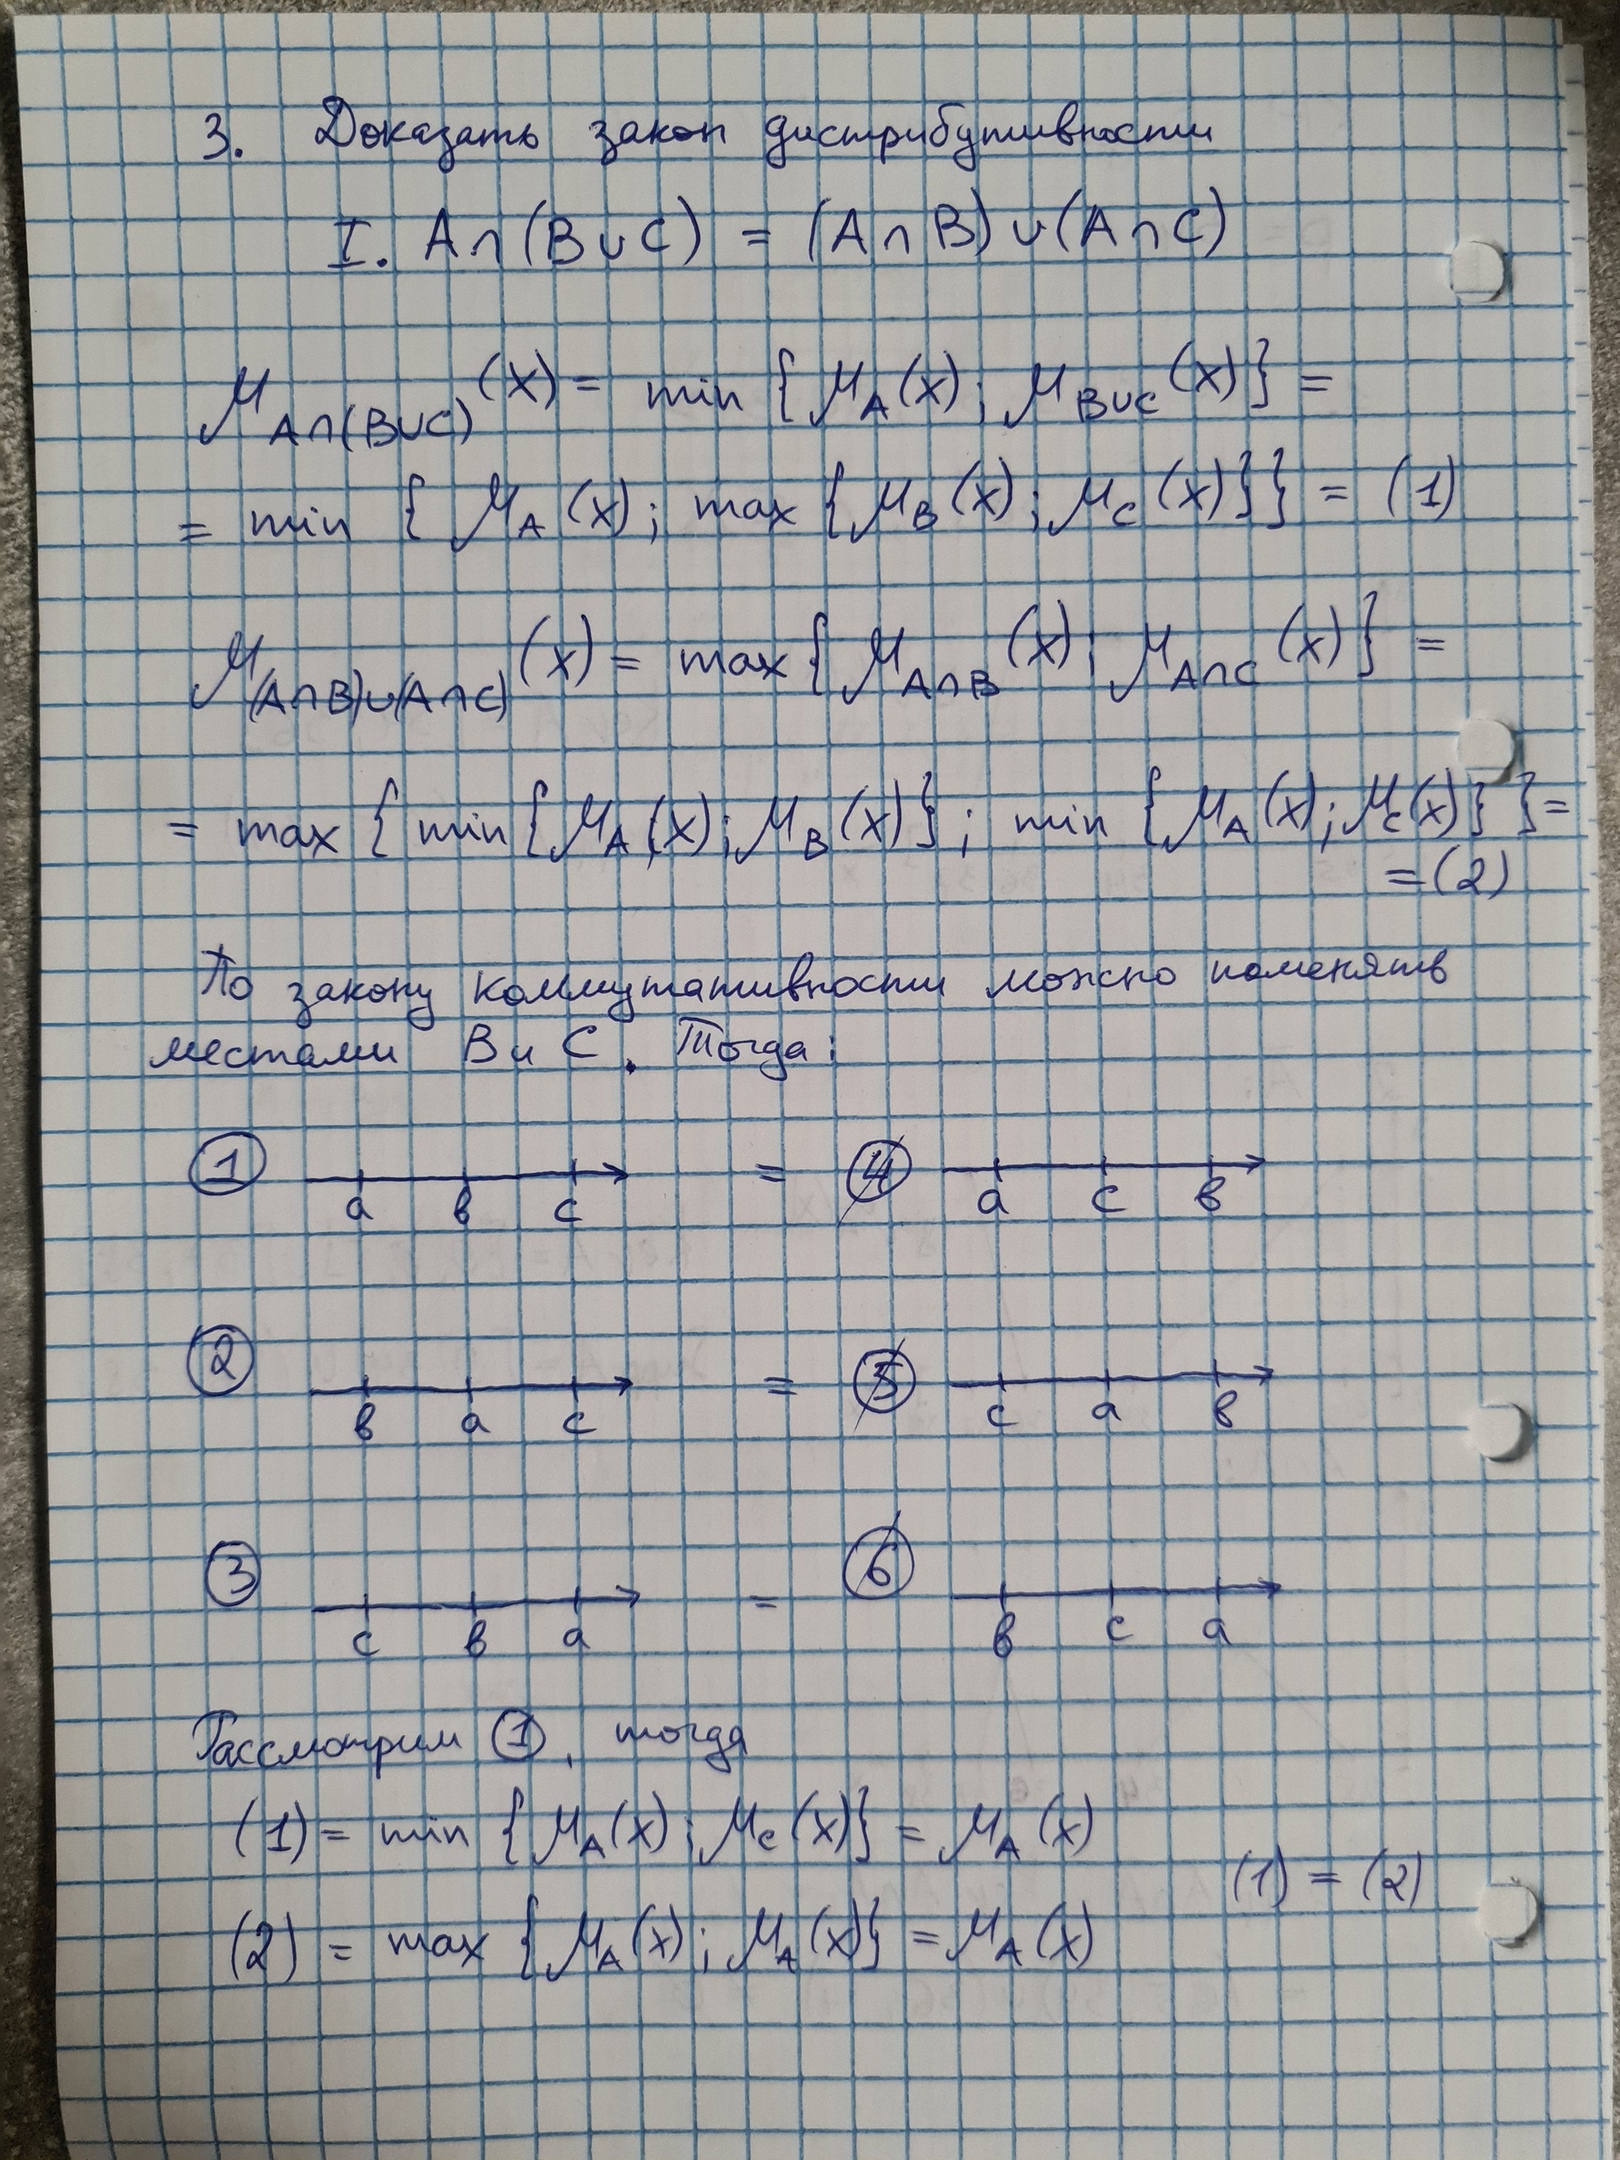 3. Доказать закон дистрибутивности
I. A∩(B∪C) = (A∩B)∪(A∩C)
μ_{A∩(B∪C)}(x) = min {μ_A(x); μ_{B∪C}(x)} =
= min {μ_A(x); max {μ_B(x); μ_C(x)}} = (1)
μ_{(A∩B)∪(A∩C)}(x) = max {μ_{A∩B}(x); μ_{A∩C}(x)} =
= max { min {μ_A(x); μ_B(x)}; min {μ_A(x); μ_C(x)} } =
= (2)
По закону коммутативности можно поменять
местами B и C. Тогда:
① a в c = ④ a c в
② в a c = ⑤ c a в
③ c в a = ⑥ в c a
Рассмотрим ①, тогда
(1) = min {μ_A(x); μ_C(x)} = μ_A(x)
(1) = (2)
(2) = max {μ_A(x); μ_A(x)} = μ_A(x)